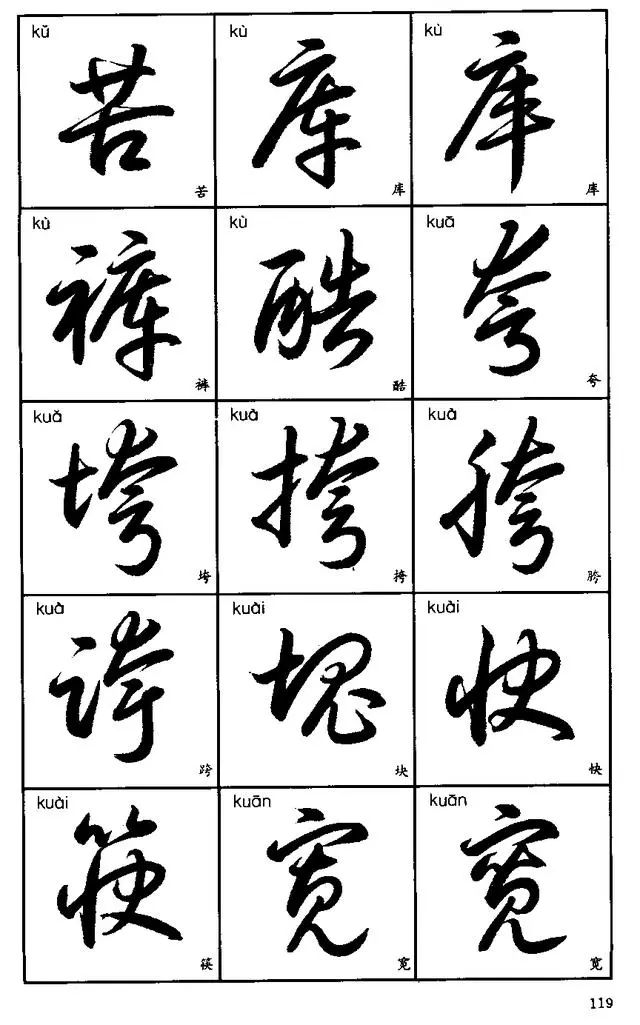 kǔ kù kù
苦 庫 庫
苦 库 库
kù kù kuā
褲 酷 夸
裤 酷 夸
kuǎ kuà kuà
垮 挎 胯
垮 挎 胯
kuà kuài kuài
跨 塊 快
跨 块 快
kuài kuān kuān
筷 寬 寬
筷 宽 宽
119